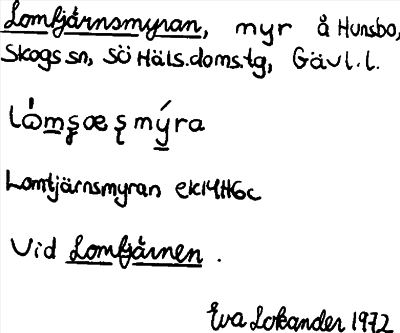 Lomtjärnsmyran, myr å Hunsbo,
Skogs sn, SÖ Häls.doms.tg, Gävl.l.
Lomtjärnsmyran ek14H6c
Vid Lomtjärnen .
Eva Lokander 1972